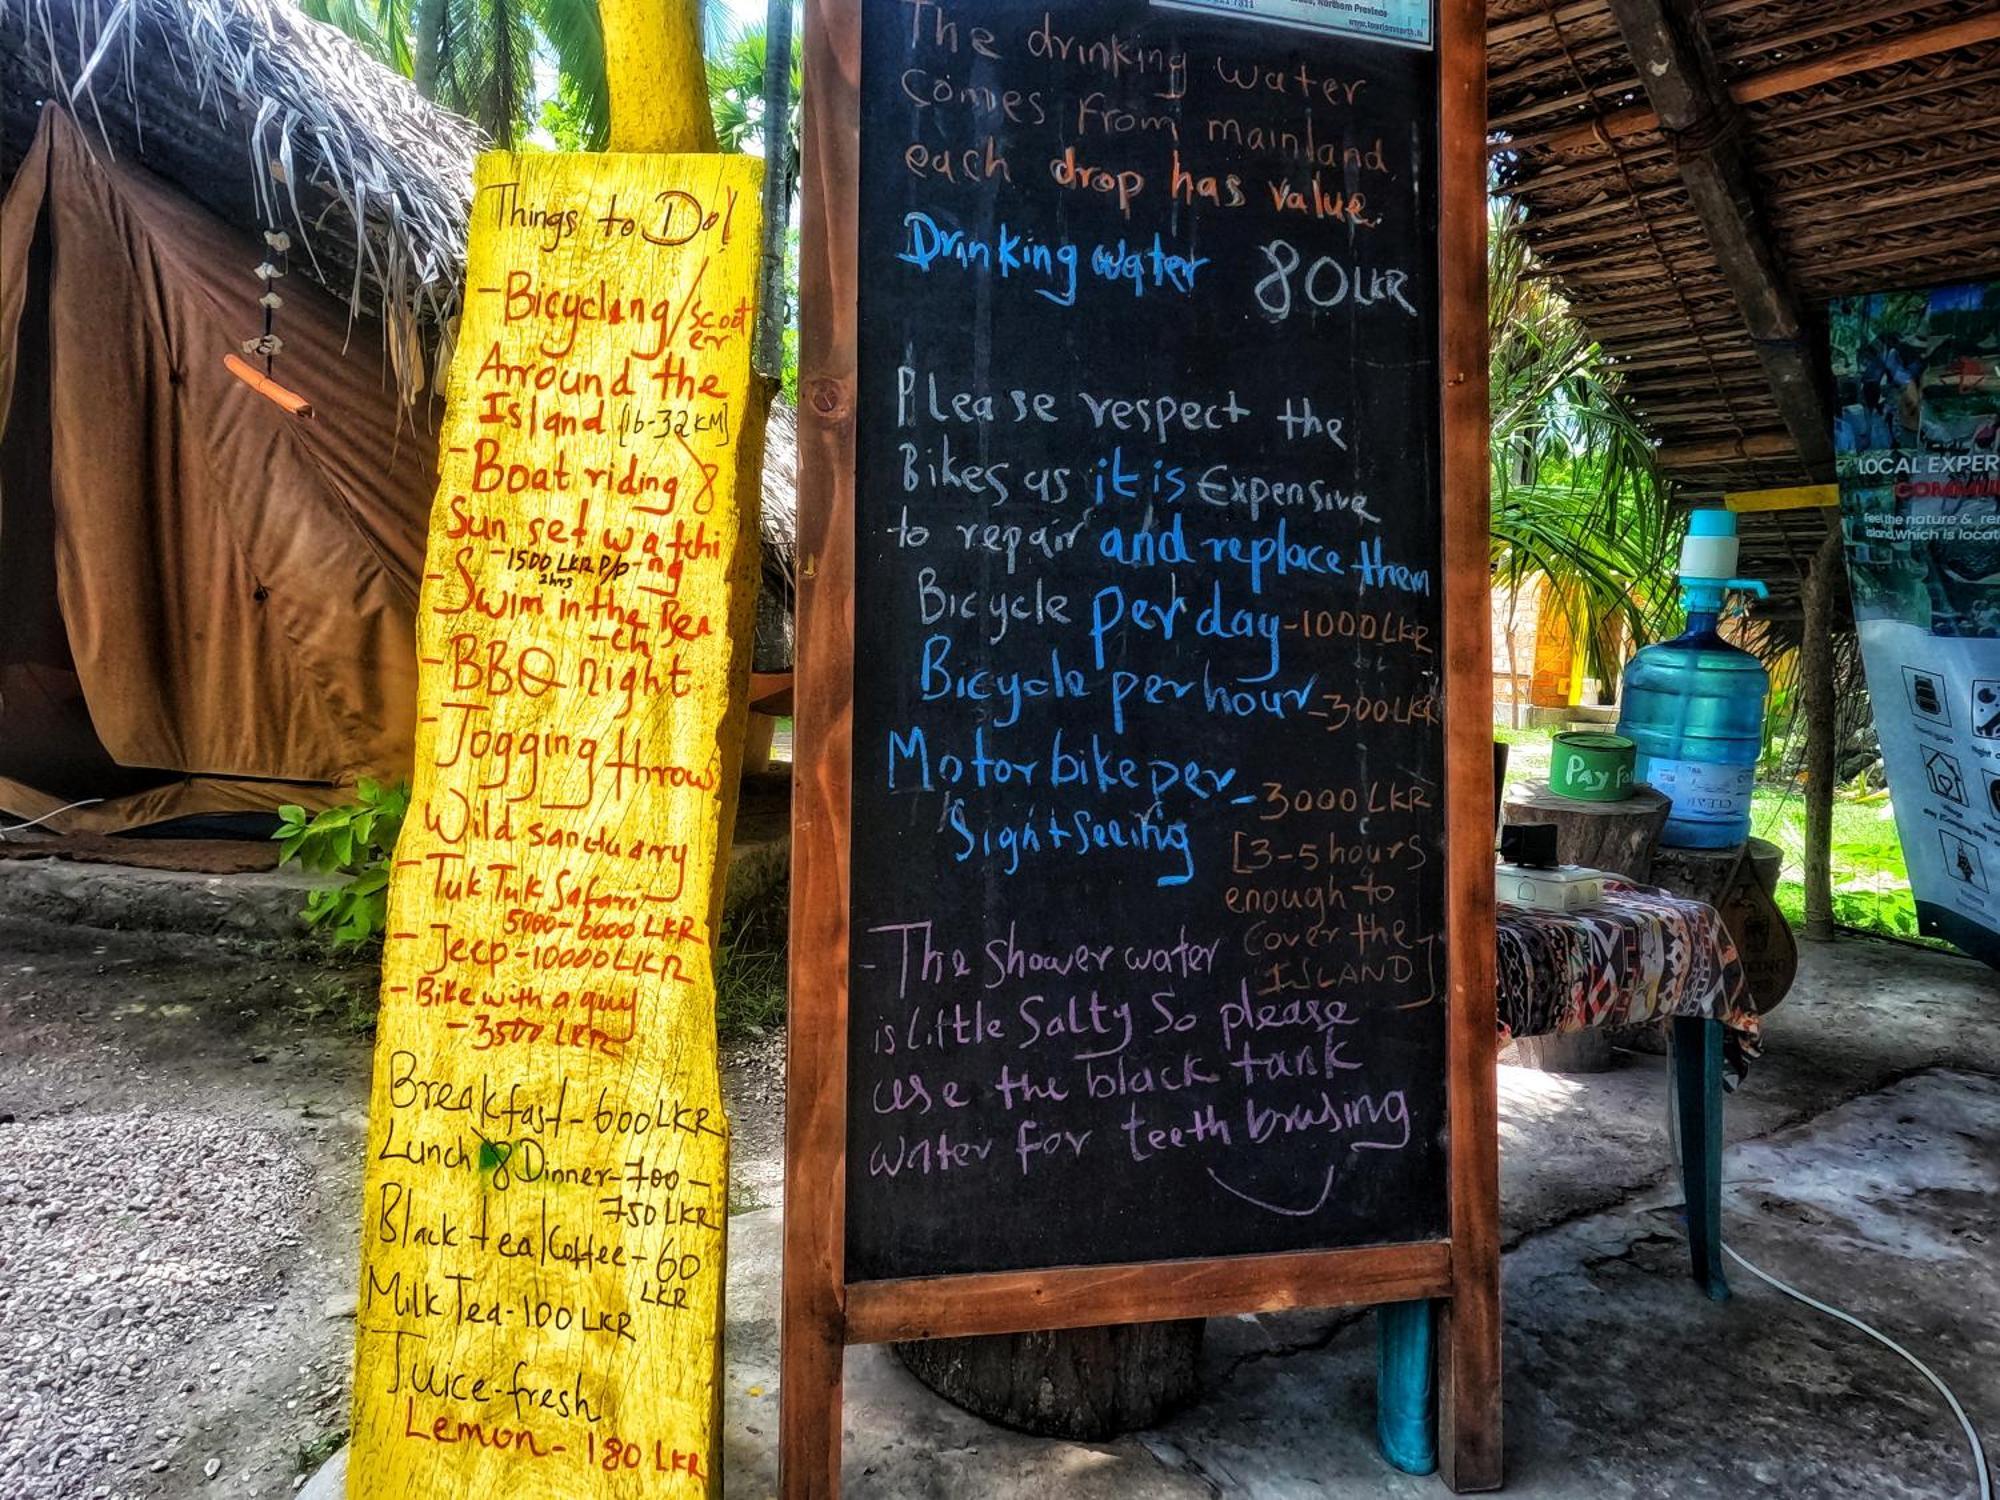 Things to Do!
- Bicycling/scoot
er
Arround the
Island [16-32 KM]
- Boat riding &
Sun set watchi
-ng
-1500 LKR P/p
2hrs
- Swim in the Bea
-ch
- BBQ night.
- Jogging throw
Wild sanctuary
- Tuk Tuk Safari
5000-6000 LKR
- Jeep-10000 LKR
- Bike with a guy
- 3500 LKR
Breakfast-600LKR
Lunch & Dinner-700-
750 LKR
Black tea/Coffee-60
LKR
Milk Tea-100 LKR
Juice-fresh
Lemon-180 LKR
Northern Province
The drinking water
Comes From mainland,
each drop has value.
Drinking water 80LKR
Please respect the
Bikes as it is Expensive
to repair and replace them
Bicycle per day-1000LKR
Bicycle per hour-300LKR
Motor bike per - 3000 LKR
Sightseeing
[3-5 hours
enough to
cover the
ISLAND]
- The shower water
is little Salty So please
use the black tank
water for teeth brusing
Pay fo
LOCAL EXPER
COMMU
Feel the nature &
island, which is locat